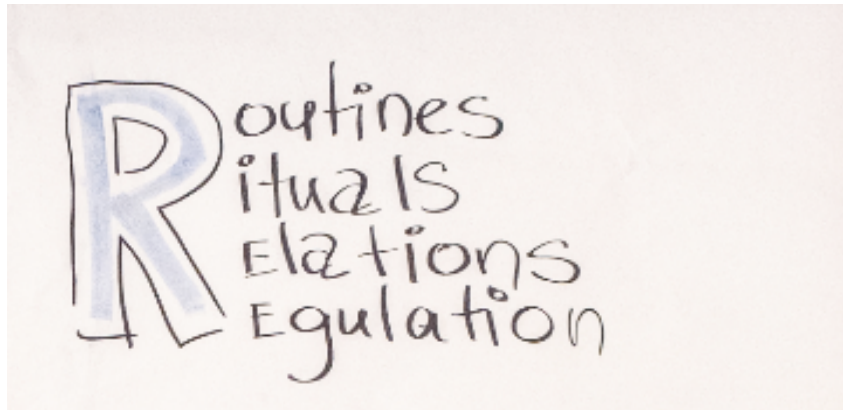 Routines
Rituals
RElations
REgulation